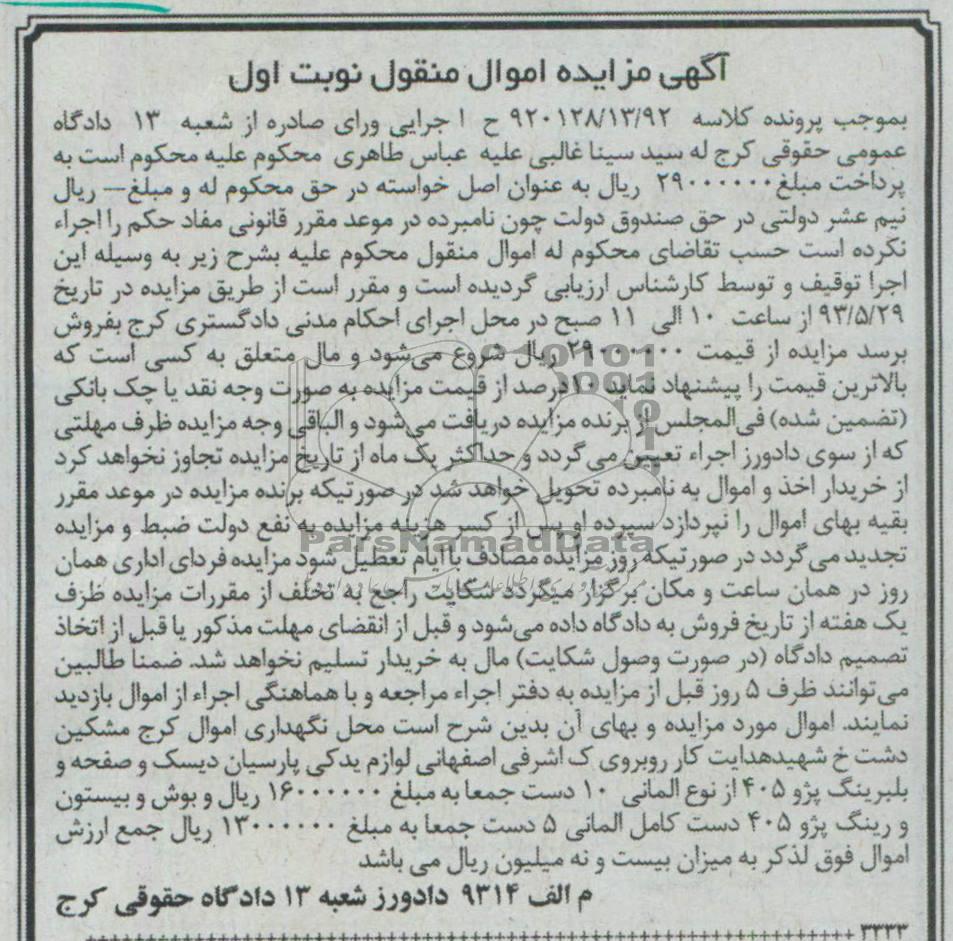 آگهی مزایده اموال منقول نوبت اول
بموجب پرونده کلاسه ۹۲۰۱۲۸/۱۳/۹۲ ح ا جرایی ورای صادره از شعبه ۱۳ دادگاه
عمومی حقوقی کرج له سید سینا غالبی علیه عباس طاهری محکوم علیه محکوم است به
پرداخت مبلغ۲۹۰۰۰۰۰۰ ریال به عنوان اصل خواسته در حق محکوم له و مبلغ— ریال
نیم عشر دولتی در حق صندوق دولت چون نامبرده در موعد مقرر قانونی مفاد حکم را اجراء
نکرده است حسب تقاضای محکوم له اموال منقول محکوم علیه بشرح زیر به وسیله این
اجرا توقیف و توسط کارشناس ارزیابی گردیده است و مقرر است از طریق مزایده در تاریخ
۹۳/۵/۲۹ از ساعت ۱۰ الی ۱۱ صبح در محل اجرای احکام مدنی دادگستری کرج بفروش
برسد مزایده از قیمت ۲۹۰۰۰۰۰۰ ریال شروع می‌شود و مال متعلق به کسی است که
بالاترین قیمت را پیشنهاد نماید ۱۰درصد از قیمت مزایده به صورت وجه نقد یا چک بانکی
(تضمین شده) فی‌المجلس از برنده مزایده دریافت می‌شود و الباقی وجه مزایده ظرف مهلتی
که از سوی دادورز اجراء تعیین می گردد و حداکثر یک ماه از تاریخ مزایده تجاوز نخواهد کرد
از خریدار اخذ و اموال به نامبرده تحویل خواهد شد در صورتیکه برنده مزایده در موعد مقرر
بقیه بهای اموال را نپردازد سپرده او پس از کسر هزینه مزایده به نفع دولت ضبط و مزایده
تجدید می گردد در صورتیکه روز مزایده مصادف با ایام تعطیل شود مزایده فردای اداری همان
روز در همان ساعت و مکان برگزار میگردد شکایت راجع به تخلف از مقررات مزایده ظزف
یک هفته از تاریخ فروش به دادگاه داده می‌شود و قبل از انقضای مهلت مذکور یا قبل از اتخاذ
تصمیم دادگاه (در صورت وصول شکایت) مال به خریدار تسلیم نخواهد شد. ضمنا طالبین
می‌توانند ظرف ۵ روز قبل از مزایده به دفتر اجراء مراجعه و با هماهنگی اجراء از اموال بازدید
نمایند. اموال مورد مزایده و بهای آن بدین شرح است محل نگهداری اموال کرج مشکین
دشت خ شهیدهدایت کار روبروی ک اشرفی اصفهانی لوازم یدکی پارسیان دیسک و صفحه و
بلبرینگ پژو ۴۰۵ از نوع المانی ۱۰ دست جمعا به مبلغ ۱۶۰۰۰۰۰۰ ریال و بوش و پیستون
و رینگ پژو ۴۰۵ دست کامل المانی ۵ دست جمعا به مبلغ ۱۳۰۰۰۰۰۰ ریال جمع ارزش
اموال فوق لذکر به میزان بیست و نه میلیون ریال می باشد
م الف ۹۳۱۴ دادورز شعبه ۱۳ دادگاه حقوقی کرج
۳۲۳۳
ParsNamadData